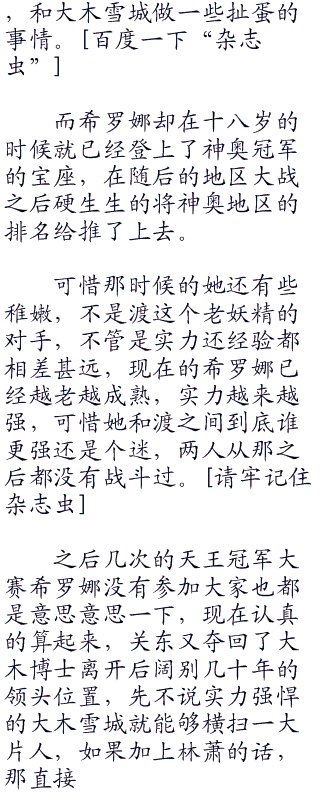 ，和大木雪城做一些扯蛋的
事情。[百度一下“杂志
虫”]
而希罗娜却在十八岁的
时候就已经登上了神奥冠军
的宝座，在随后的地区大战
之后硬生生的将神奥地区的
排名给推了上去。
可惜那时候的她还有些
稚嫩，不是渡这个老妖精的
对手，不管是实力还经验都
相差甚远，现在的希罗娜已
经越老越成熟，实力越来越
强，可惜她和渡之间到底谁
更强还是个迷，两人从那之
后都没有战斗过。[请牢记住
杂志虫]
之后几次的天王冠军大
赛希罗娜没有参加大家也都
是意思意思一下，现在认真
的算起来，关东又夺回了大
木博士离开后阔别几十年的
领头位置，先不说实力强悍
的大木雪城就能够横扫一大
片人，如果加上林萧的话，
那直接